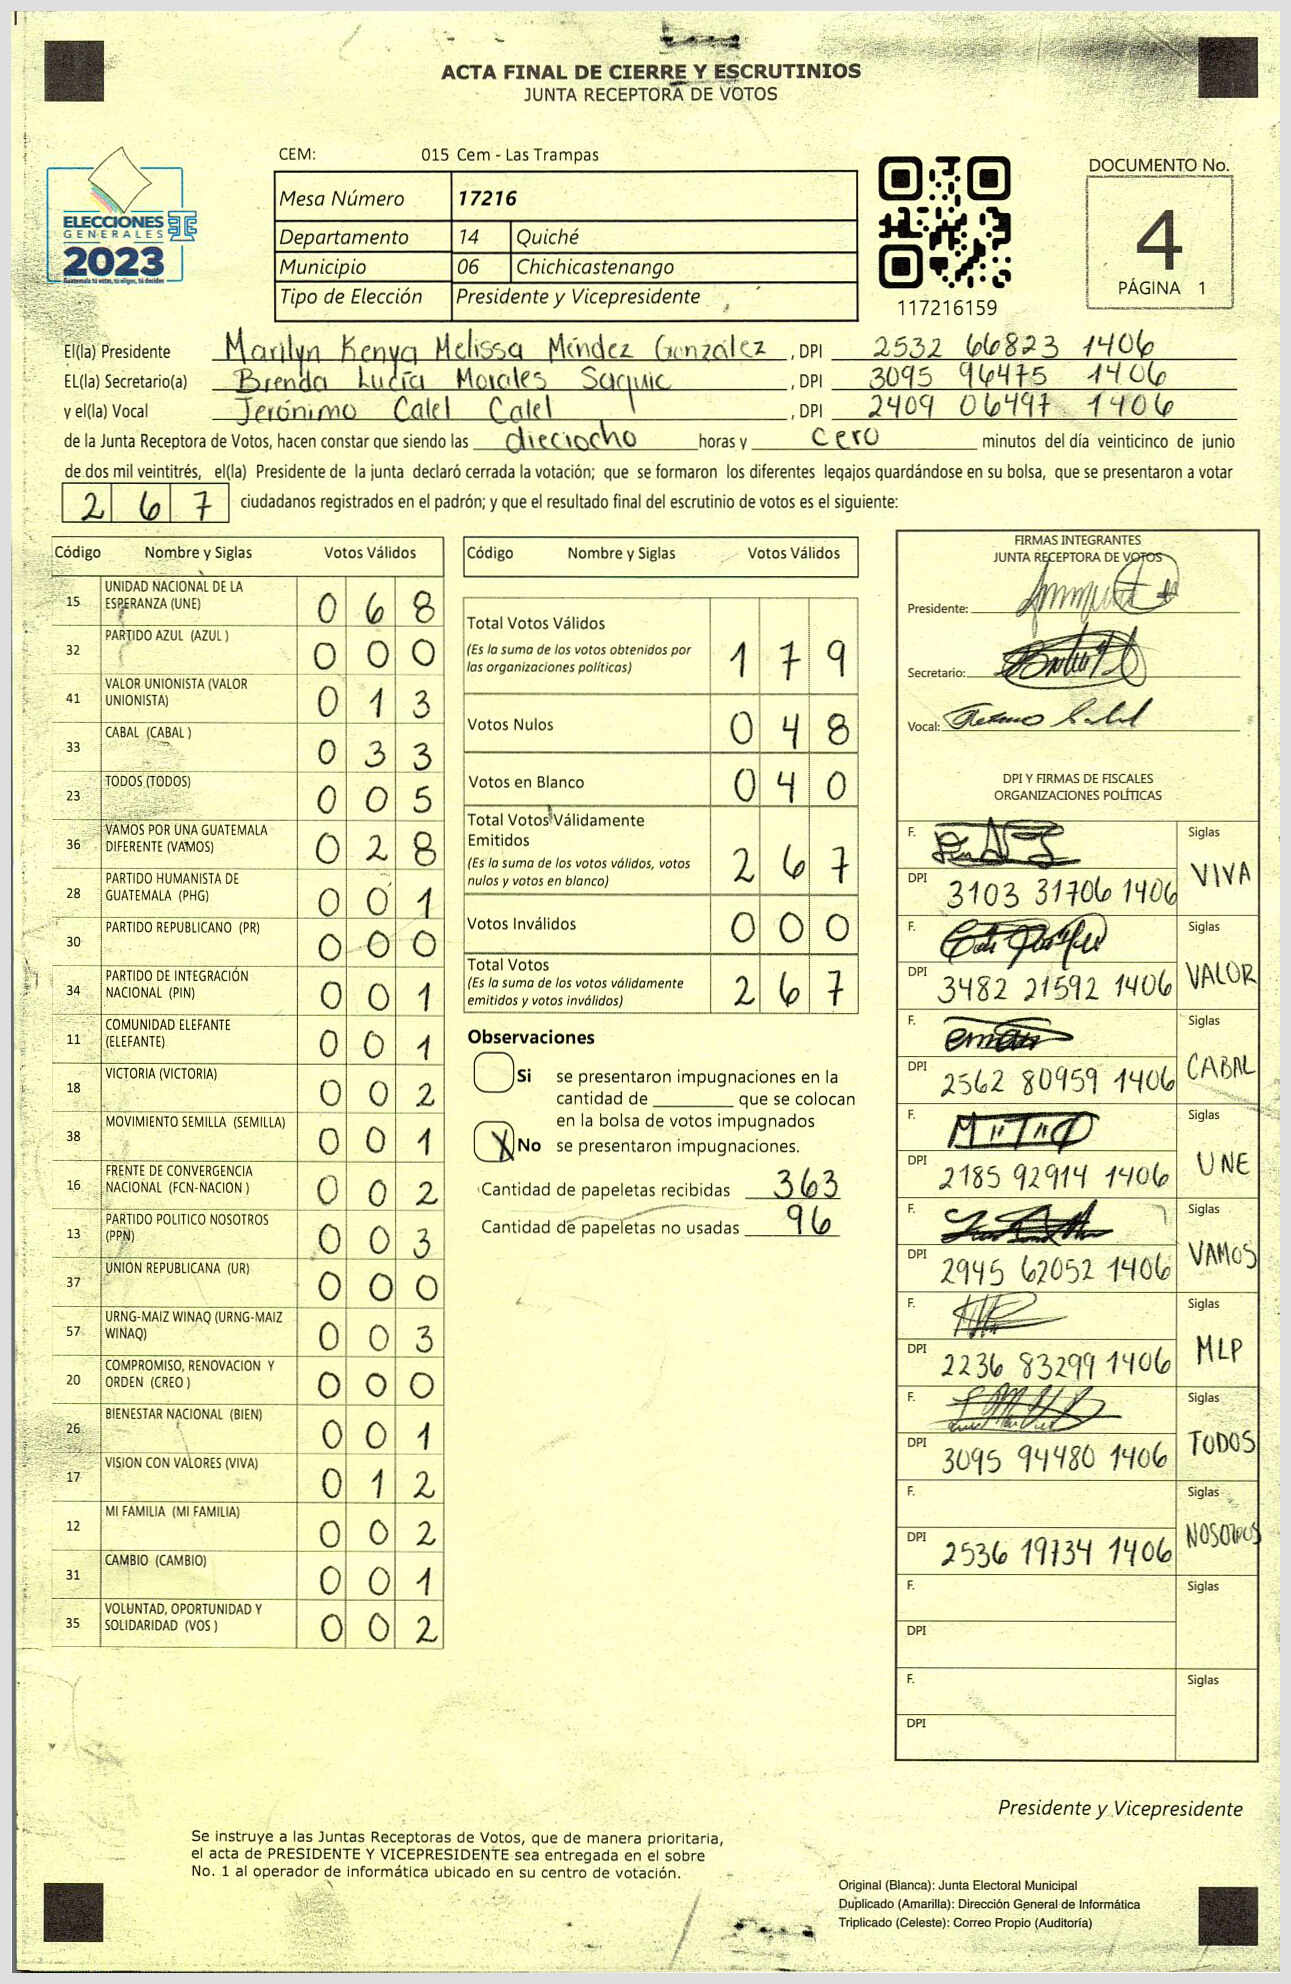 ACTA FINAL DE CIERRE Y ESCRUTINIOS
JUNTA RECEPTORA DE VOTOS
CEM: 015 Cem - Las Trampas
ELECCIONES
GENERALES
2023
Guatemala tú votas, tú eliges, tú decides
Mesa Número 17216
Departamento 14 Quiché
Municipio 06 Chichicastenango
Tipo de Elección Presidente y Vicepresidente
117216159
DOCUMENTO No.
4
PÁGINA 1
El(la) Presidente Marilyn Kenya Melissa Méndez González , DPI 2532 66823 1406
EL(la) Secretario(a) Brenda Lucía Morales Saquic , DPI 3095 96475 1406
y el(la) Vocal Jerónimo Calel Calel , DPI 2409 06497 1406
de la Junta Receptora de Votos, hacen constar que siendo las dieciocho horas y cero minutos del día veinticinco de junio
de dos mil veintitrés, el(la) Presidente de la junta declaró cerrada la votación; que se formaron los diferentes legajos guardándose en su bolsa, que se presentaron a votar
267 ciudadanos registrados en el padrón; y que el resultado final del escrutinio de votos es el siguiente:
Código Nombre y Siglas Votos Válidos
15 UNIDAD NACIONAL DE LA ESPERANZA (UNE) 068
32 PARTIDO AZUL (AZUL ) 000
41 VALOR UNIONISTA (VALOR UNIONISTA) 013
33 CABAL (CABAL ) 033
23 TODOS (TODOS) 005
36 VAMOS POR UNA GUATEMALA DIFERENTE (VAMOS) 028
28 PARTIDO HUMANISTA DE GUATEMALA (PHG) 001
30 PARTIDO REPUBLICANO (PR) 000
34 PARTIDO DE INTEGRACIÓN NACIONAL (PIN) 001
11 COMUNIDAD ELEFANTE (ELEFANTE) 001
18 VICTORIA (VICTORIA) 002
38 MOVIMIENTO SEMILLA (SEMILLA) 001
16 FRENTE DE CONVERGENCIA NACIONAL (FCN-NACION ) 002
13 PARTIDO POLITICO NOSOTROS (PPN) 003
37 UNION REPUBLICANA (UR) 000
57 URNG-MAIZ WINAQ (URNG-MAIZ WINAQ) 003
20 COMPROMISO, RENOVACION Y ORDEN (CREO ) 000
26 BIENESTAR NACIONAL (BIEN) 001
17 VISION CON VALORES (VIVA) 012
12 MI FAMILIA (MI FAMILIA) 002
31 CAMBIO (CAMBIO) 001
35 VOLUNTAD, OPORTUNIDAD Y SOLIDARIDAD (VOS ) 002
Código Nombre y Siglas Votos Válidos
Total Votos Válidos
(Es la suma de los votos obtenidos por
las organizaciones políticas) 179
Votos Nulos 048
Votos en Blanco 040
Total Votos Válidamente
Emitidos
(Es la suma de los votos válidos, votos
nulos y votos en blanco) 267
Votos Inválidos 000
Total Votos
(Es la suma de los votos válidamente
emitidos y votos inválidos) 267
Observaciones
Si se presentaron impugnaciones en la
cantidad de ________ que se colocan
en la bolsa de votos impugnados
X No se presentaron impugnaciones.
Cantidad de papeletas recibidas 363
Cantidad de papeletas no usadas 96
FIRMAS INTEGRANTES
JUNTA RECEPTORA DE VOTOS
Presidente:
Secretario:
Vocal:
DPI Y FIRMAS DE FISCALES
ORGANIZACIONES POLÍTICAS
F. Siglas
DPI 3103 31706 1406 VIVA
F. Siglas
DPI 3482 21592 1406 VALOR
F. Siglas
DPI 2562 80959 1406 CABAL
F. Siglas
DPI 2185 92914 1406 UNE
F. Siglas
DPI 2945 62052 1406 VAMOS
F. Siglas
DPI 2236 83299 1406 MLP
F. Siglas
DPI 3095 94480 1406 TODOS
F. Siglas
DPI 2536 19734 1406 NOSOTROS
F. Siglas
DPI
F. Siglas
DPI
Presidente y Vicepresidente
Se instruye a las Juntas Receptoras de Votos, que de manera prioritaria,
el acta de PRESIDENTE Y VICEPRESIDENTE sea entregada en el sobre
No. 1 al operador de informática ubicado en su centro de votación.
Original (Blanca): Junta Electoral Municipal
Duplicado (Amarilla): Dirección General de Informática
Triplicado (Celeste): Correo Propio (Auditoría)